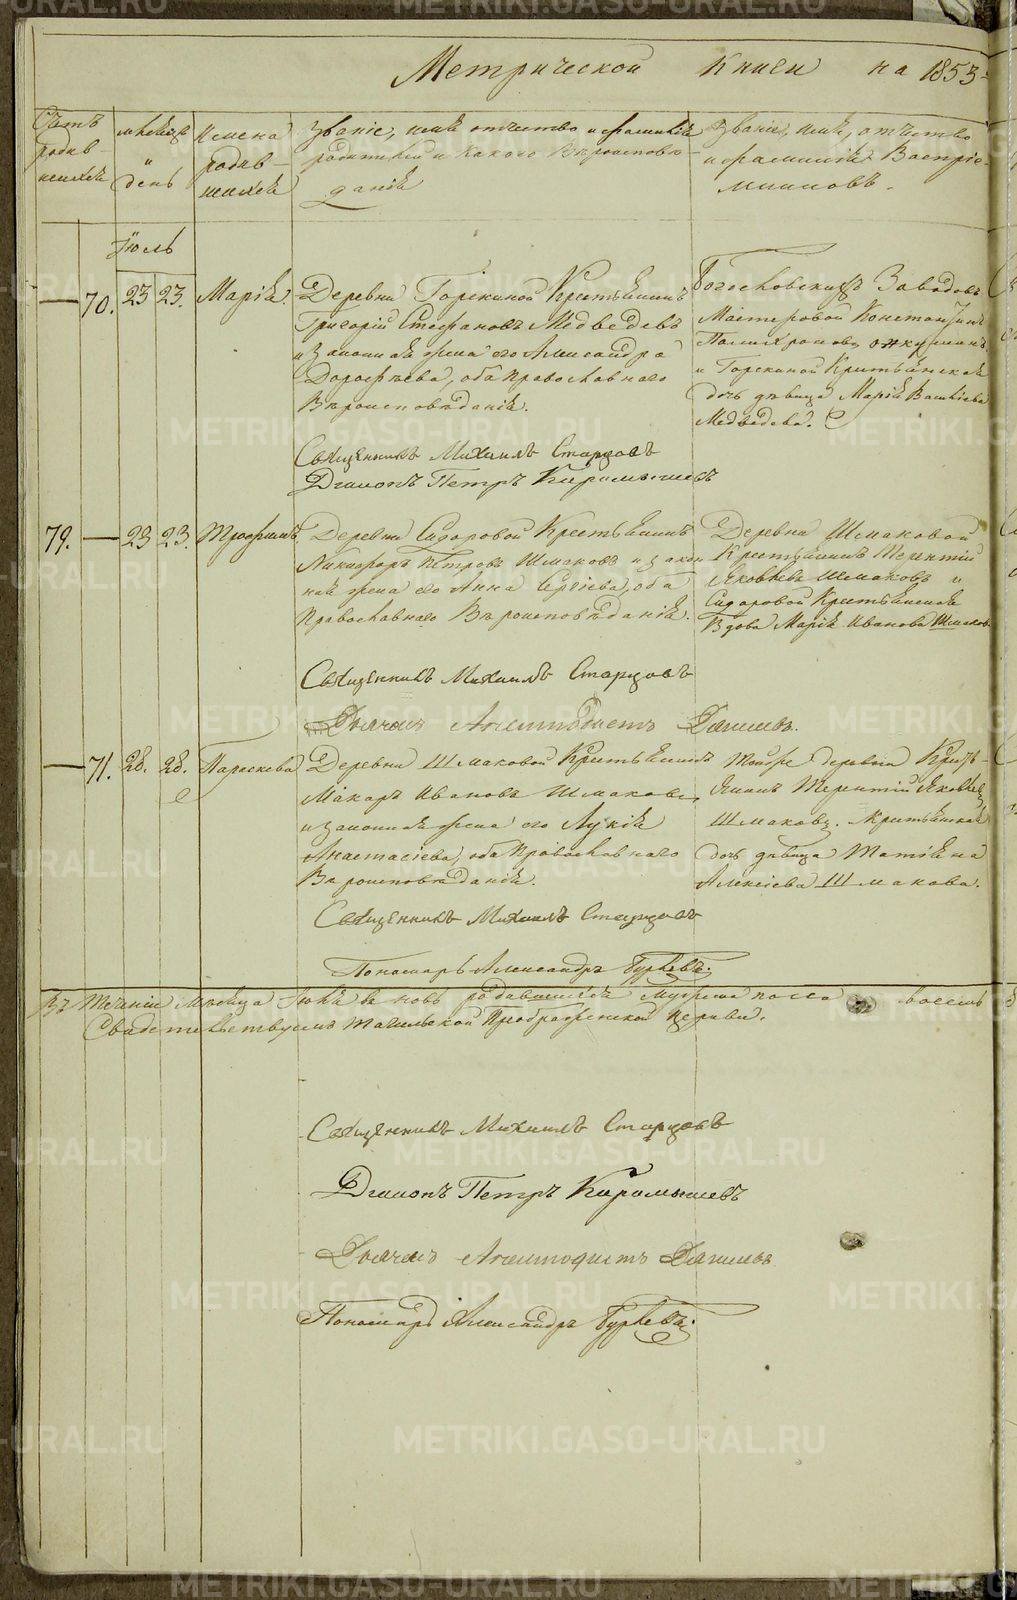 Метрической книги на 1853
Счетъ родив-шихся
месяцъ и день
Имена родив-шихся
Званіе, имя отчество и фамилія
родителей и какого вѣроисповѣ-
данія
Званіе, имя, отчество
и фамилія Воспріе-
мниковъ.
Іюль
— 70. 23 23. Марія.
Деревни Горскиной Крестьянинъ
Григорій Стефановъ Медведевъ
и законная жена его Александра
Дорофѣева, оба православнаго
Вѣроисповѣданія.
Богословскихъ Заводовъ
Мастеровой Константинъ
и Горскиной Крестьянская
дочь дѣвица Марія
Медведева.
Священникъ Михаилъ Старцовъ
Діаконъ Петръ Карамышевъ
79. — 23 23. Трофимъ.
Деревни Сидоровой Крестьянинъ
Никифоръ Петровъ Шмаковъ и закон
ная жена его Анна Сергіева, оба
Православнаго Вѣроисповѣданія.
Деревни Шмаковой
Крестьянинъ Терентій
Яковлевъ Шмаковъ и
Сидоровой Крестьянская
Вдова Марія Иванова Шмаков
Священникъ Михаилъ Старцовъ
Дьячекъ Данилевъ.
— 71. 28. 28. Параскева
Деревни Шмаковой Крестьянинъ
Макаръ Ивановъ Шмаковъ
и законная жена его Лукія
Анастасіева, оба Православнаго
Вѣроисповѣданія.
Тойже деревни Кресть-
янинъ Терентій Яковлевъ
Шмаковъ. Крестьянская
дочь дѣвица Татіяна
Алексіева Шмакова.
Священникъ Михаилъ Старцовъ
Пономарь Александръ Гурьевъ.
Въ теченіи месяца Іюля вновь родавшихся Мужеска пола восемь
Свидетельствуемъ Преображенской Церкви.
Священникъ Михаилъ Старцовъ
Діаконъ Петръ Карамышевъ
Дьячекъ Данилевъ
Пономарь Александръ Гурьевъ.
METRIKI.GASO-URAL.RU